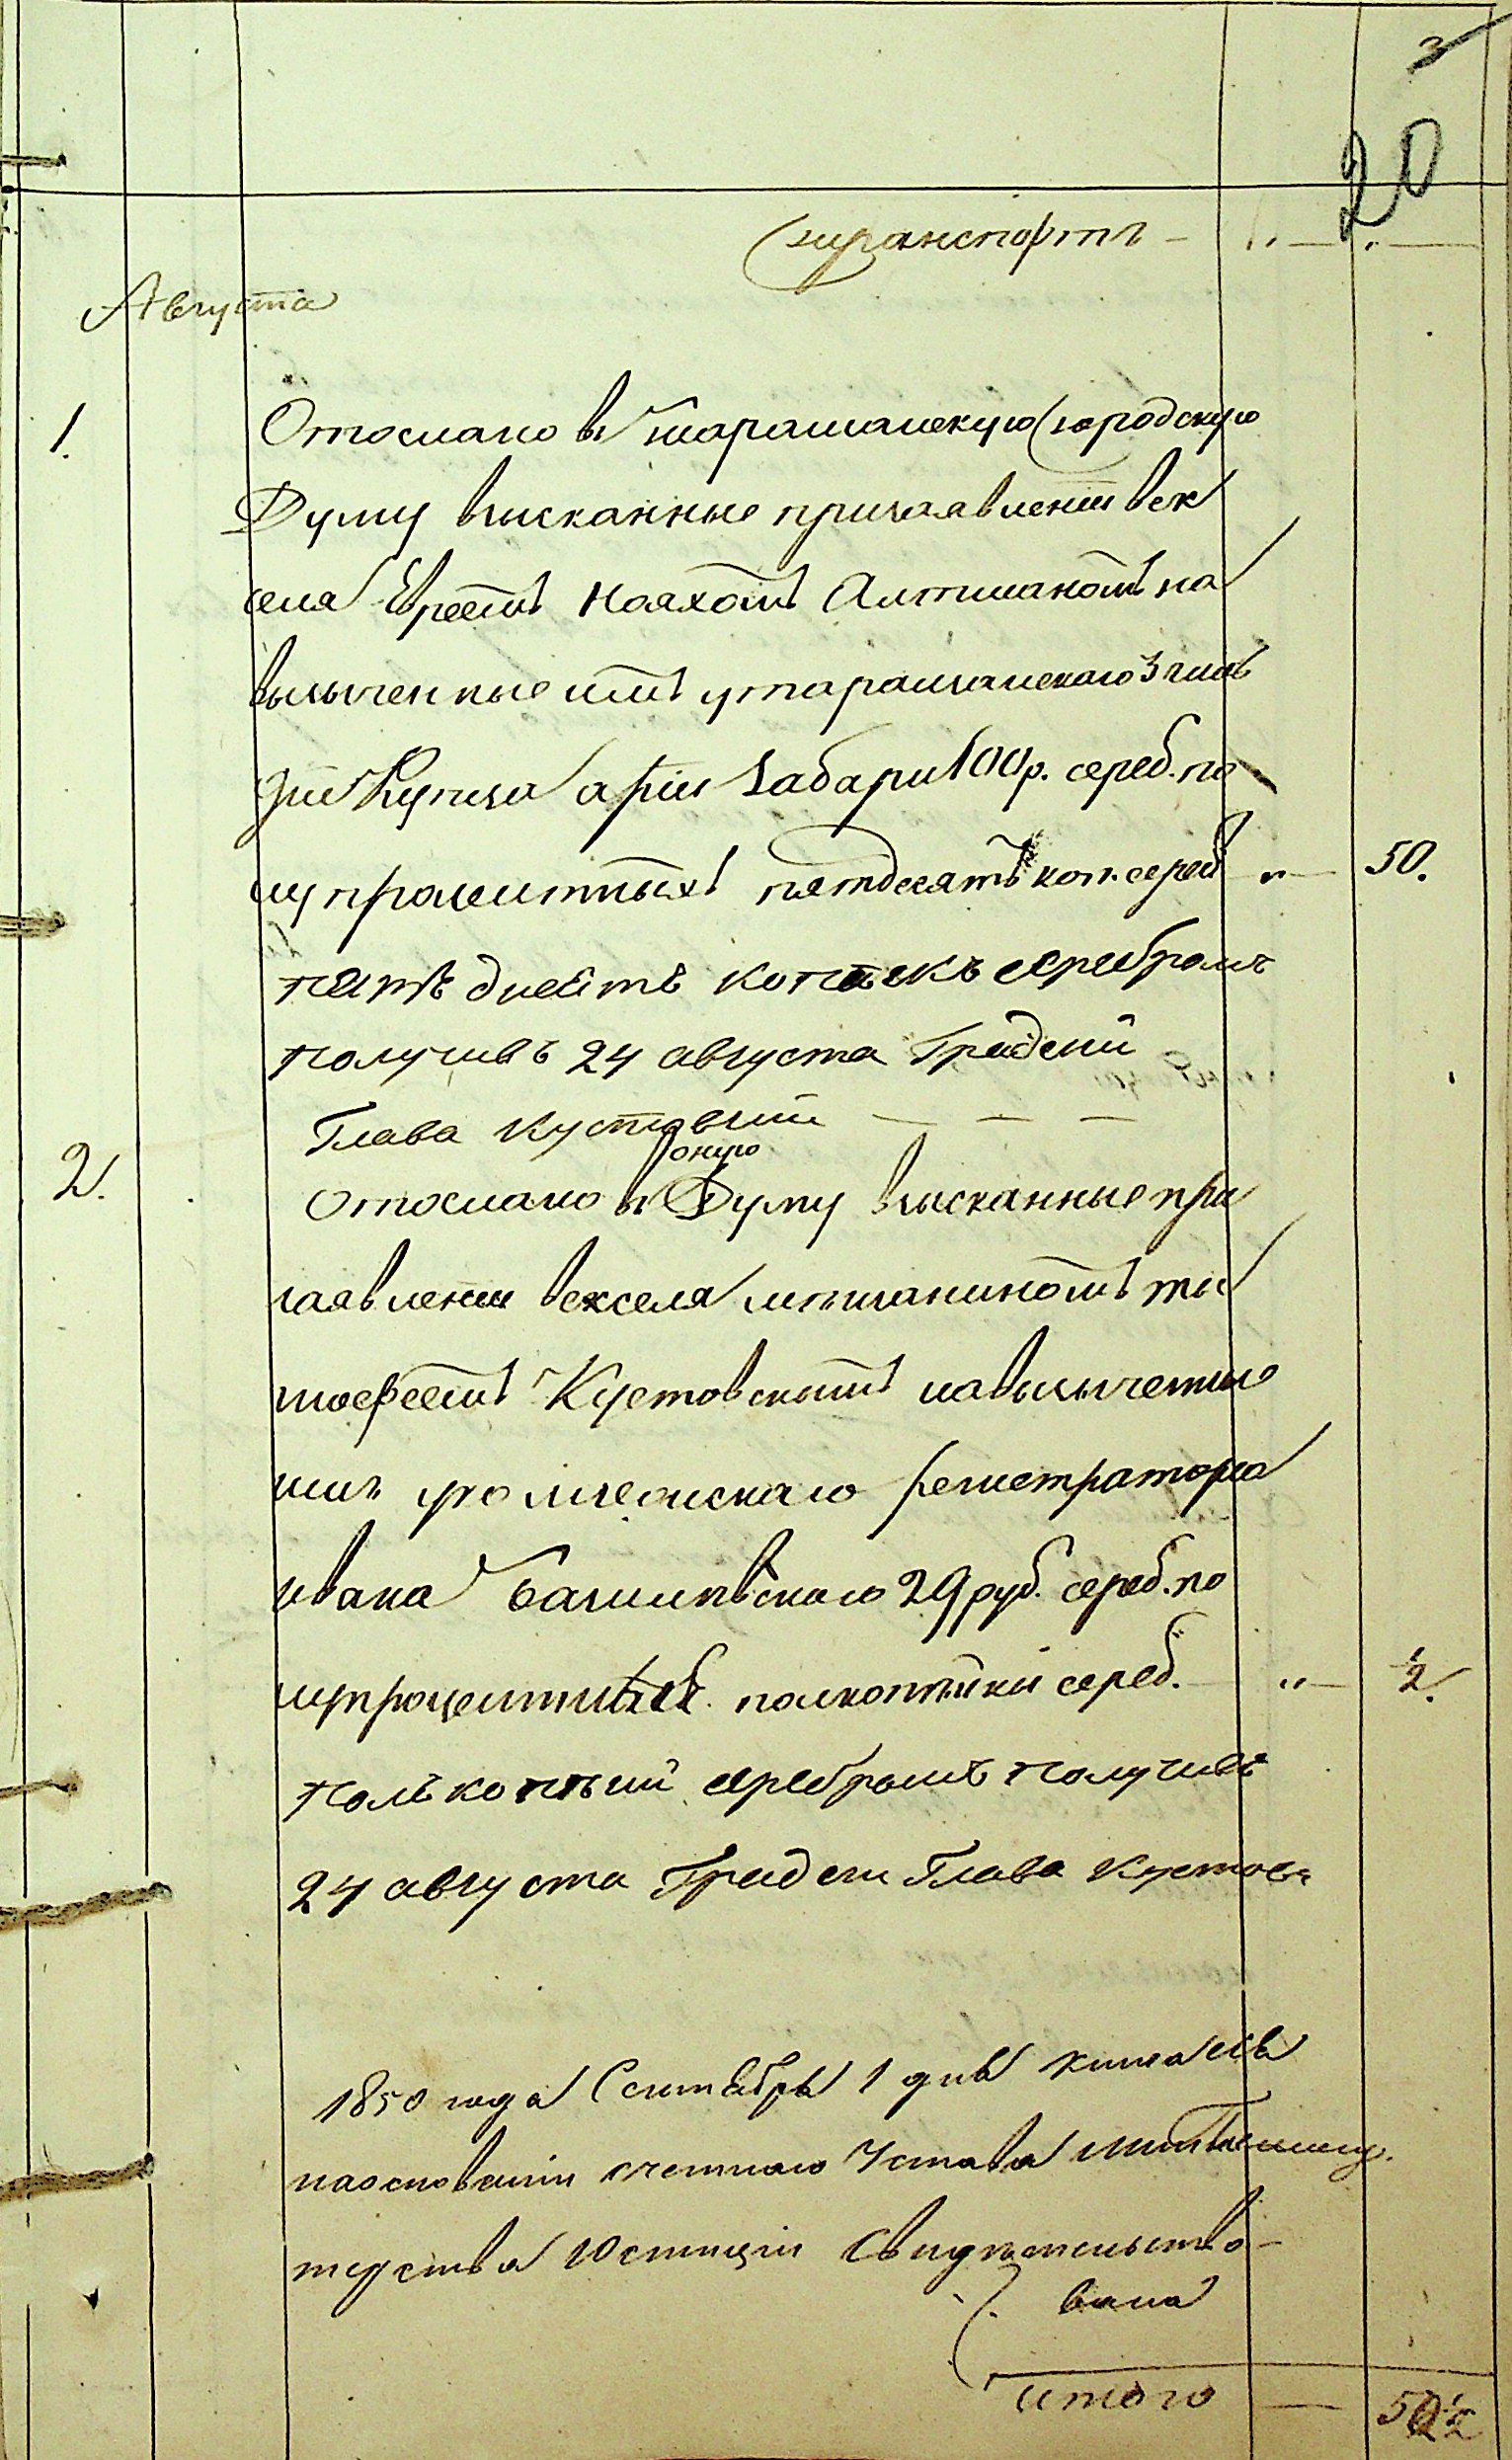 3
20
Транспортъ — „ — „ —
Августа
1. Отослано въ Таращанскую городскую
Думу взысканные призаявленіи век
селя Евреемъ Нояхомъ Алтманомъ на
взыченные имъ утаращанскаго 3 гиль
діи Купца аріи Забари 100 р. сереб. по
лупроцентныхъ пятдесятъ коп. сереб „ — 50.
пятъ десятъ копѣекъ серебромъ
получивъ 24 августа Градской
Глава Кустовский — — —
оную
2. Отослано въ Думу взысканные при
заявленіи векселя мѣщаниномъ ти
мофеемъ Кустовскимъ навзыченные
имъ уколежскаго регистратора
ивана 29 руб. сереб. по
лупроцентныхъ полкопѣйки сереб. „ — ½.
полъ копѣйки серебромъ получивъ
24 августа Градски Глава Кустовс
1850 года Сентября 1 дня книга сія
наоснованіи счетнаго Устава Минис
терства Юстиціи Свидѣтельство-
вана
итого — 50½